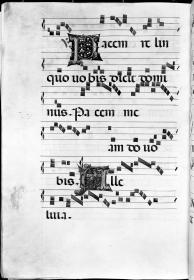 Pacem re lin
quo vo bis dicit domi
nus. Pa cem me
am do vo
bis. Alle
luia.